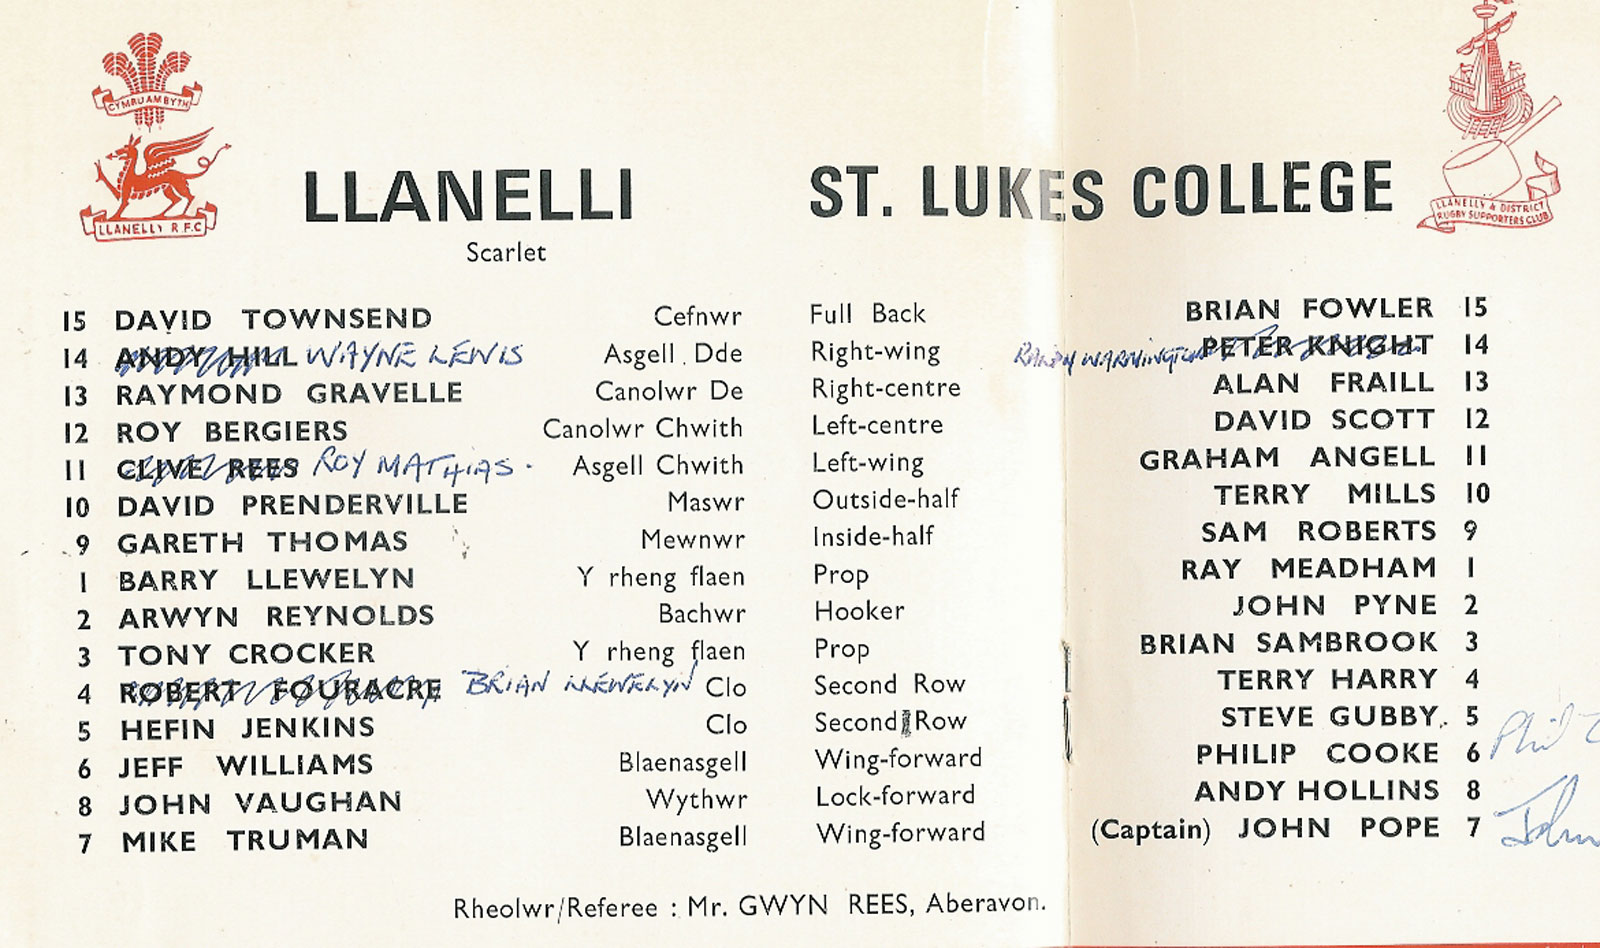 CYMRU AM BYTH
LLANELLY R.F.C
LLANELLY & DISTRICT
RUGBY SUPPORTERS CLUB
LLANELLI ST. LUKES COLLEGE
Scarlet
15 DAVID TOWNSEND Cefnwr Full Back BRIAN FOWLER 15
14 ANDY HILL WAYNE LEWIS Asgell Dde Right-wing RANDY WARMINGTON PETER KNIGHT 14
13 RAYMOND GRAVELLE Canolwr De Right-centre ALAN FRAILL 13
12 ROY BERGIERS Canolwr Chwith Left-centre DAVID SCOTT 12
11 CLIVE REES ROY MATHIAS. Asgell Chwith Left-wing GRAHAM ANGELL 11
10 DAVID PRENDERVILLE Maswr Outside-half TERRY MILLS 10
9 GARETH THOMAS Mewnwr Inside-half SAM ROBERTS 9
1 BARRY LLEWELYN Y rheng flaen Prop RAY MEADHAM 1
2 ARWYN REYNOLDS Bachwr Hooker JOHN PYNE 2
3 TONY CROCKER Y rheng flaen Prop BRIAN SAMBROOK 3
4 ROBERT FOURACRE BRIAN LLEWELYN Clo Second Row TERRY HARRY 4
5 HEFIN JENKINS Clo Second Row STEVE GUBBY. 5
6 JEFF WILLIAMS Blaenasgell Wing-forward PHILIP COOKE 6 Phil
8 JOHN VAUGHAN Wythwr Lock-forward ANDY HOLLINS 8
7 MIKE TRUMAN Blaenasgell Wing-forward (Captain) JOHN POPE 7 John
Rheolwr/Referee : Mr. GWYN REES, Aberavon.